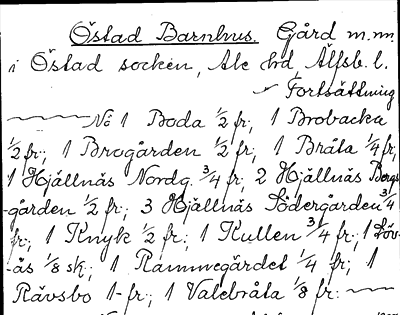 Östad Barnhus. Gård m.m.
i Östad socken, Ale hd Älfsb. l.
Fortsättning
No 1 Boda ½ fr; 1 Brobacka
½ fr; 1 Brogården ½ fr; 1 Bråta ¼ fr;
1 Hjällnäs Nordg. ¾ fr; 2 Hjällnäs Bergs-
gården ½ fr; 3 Hjällnäs Södergården ¾
fr; 1 Knyk ½ fr; 1 Kullen ¾ fr; 1 Löv-
-ås ⅛ sk; 1 Rammegärdet ¼ fr; 1
Rävsbo 1- fr; 1 Valebråta ⅛ fr.